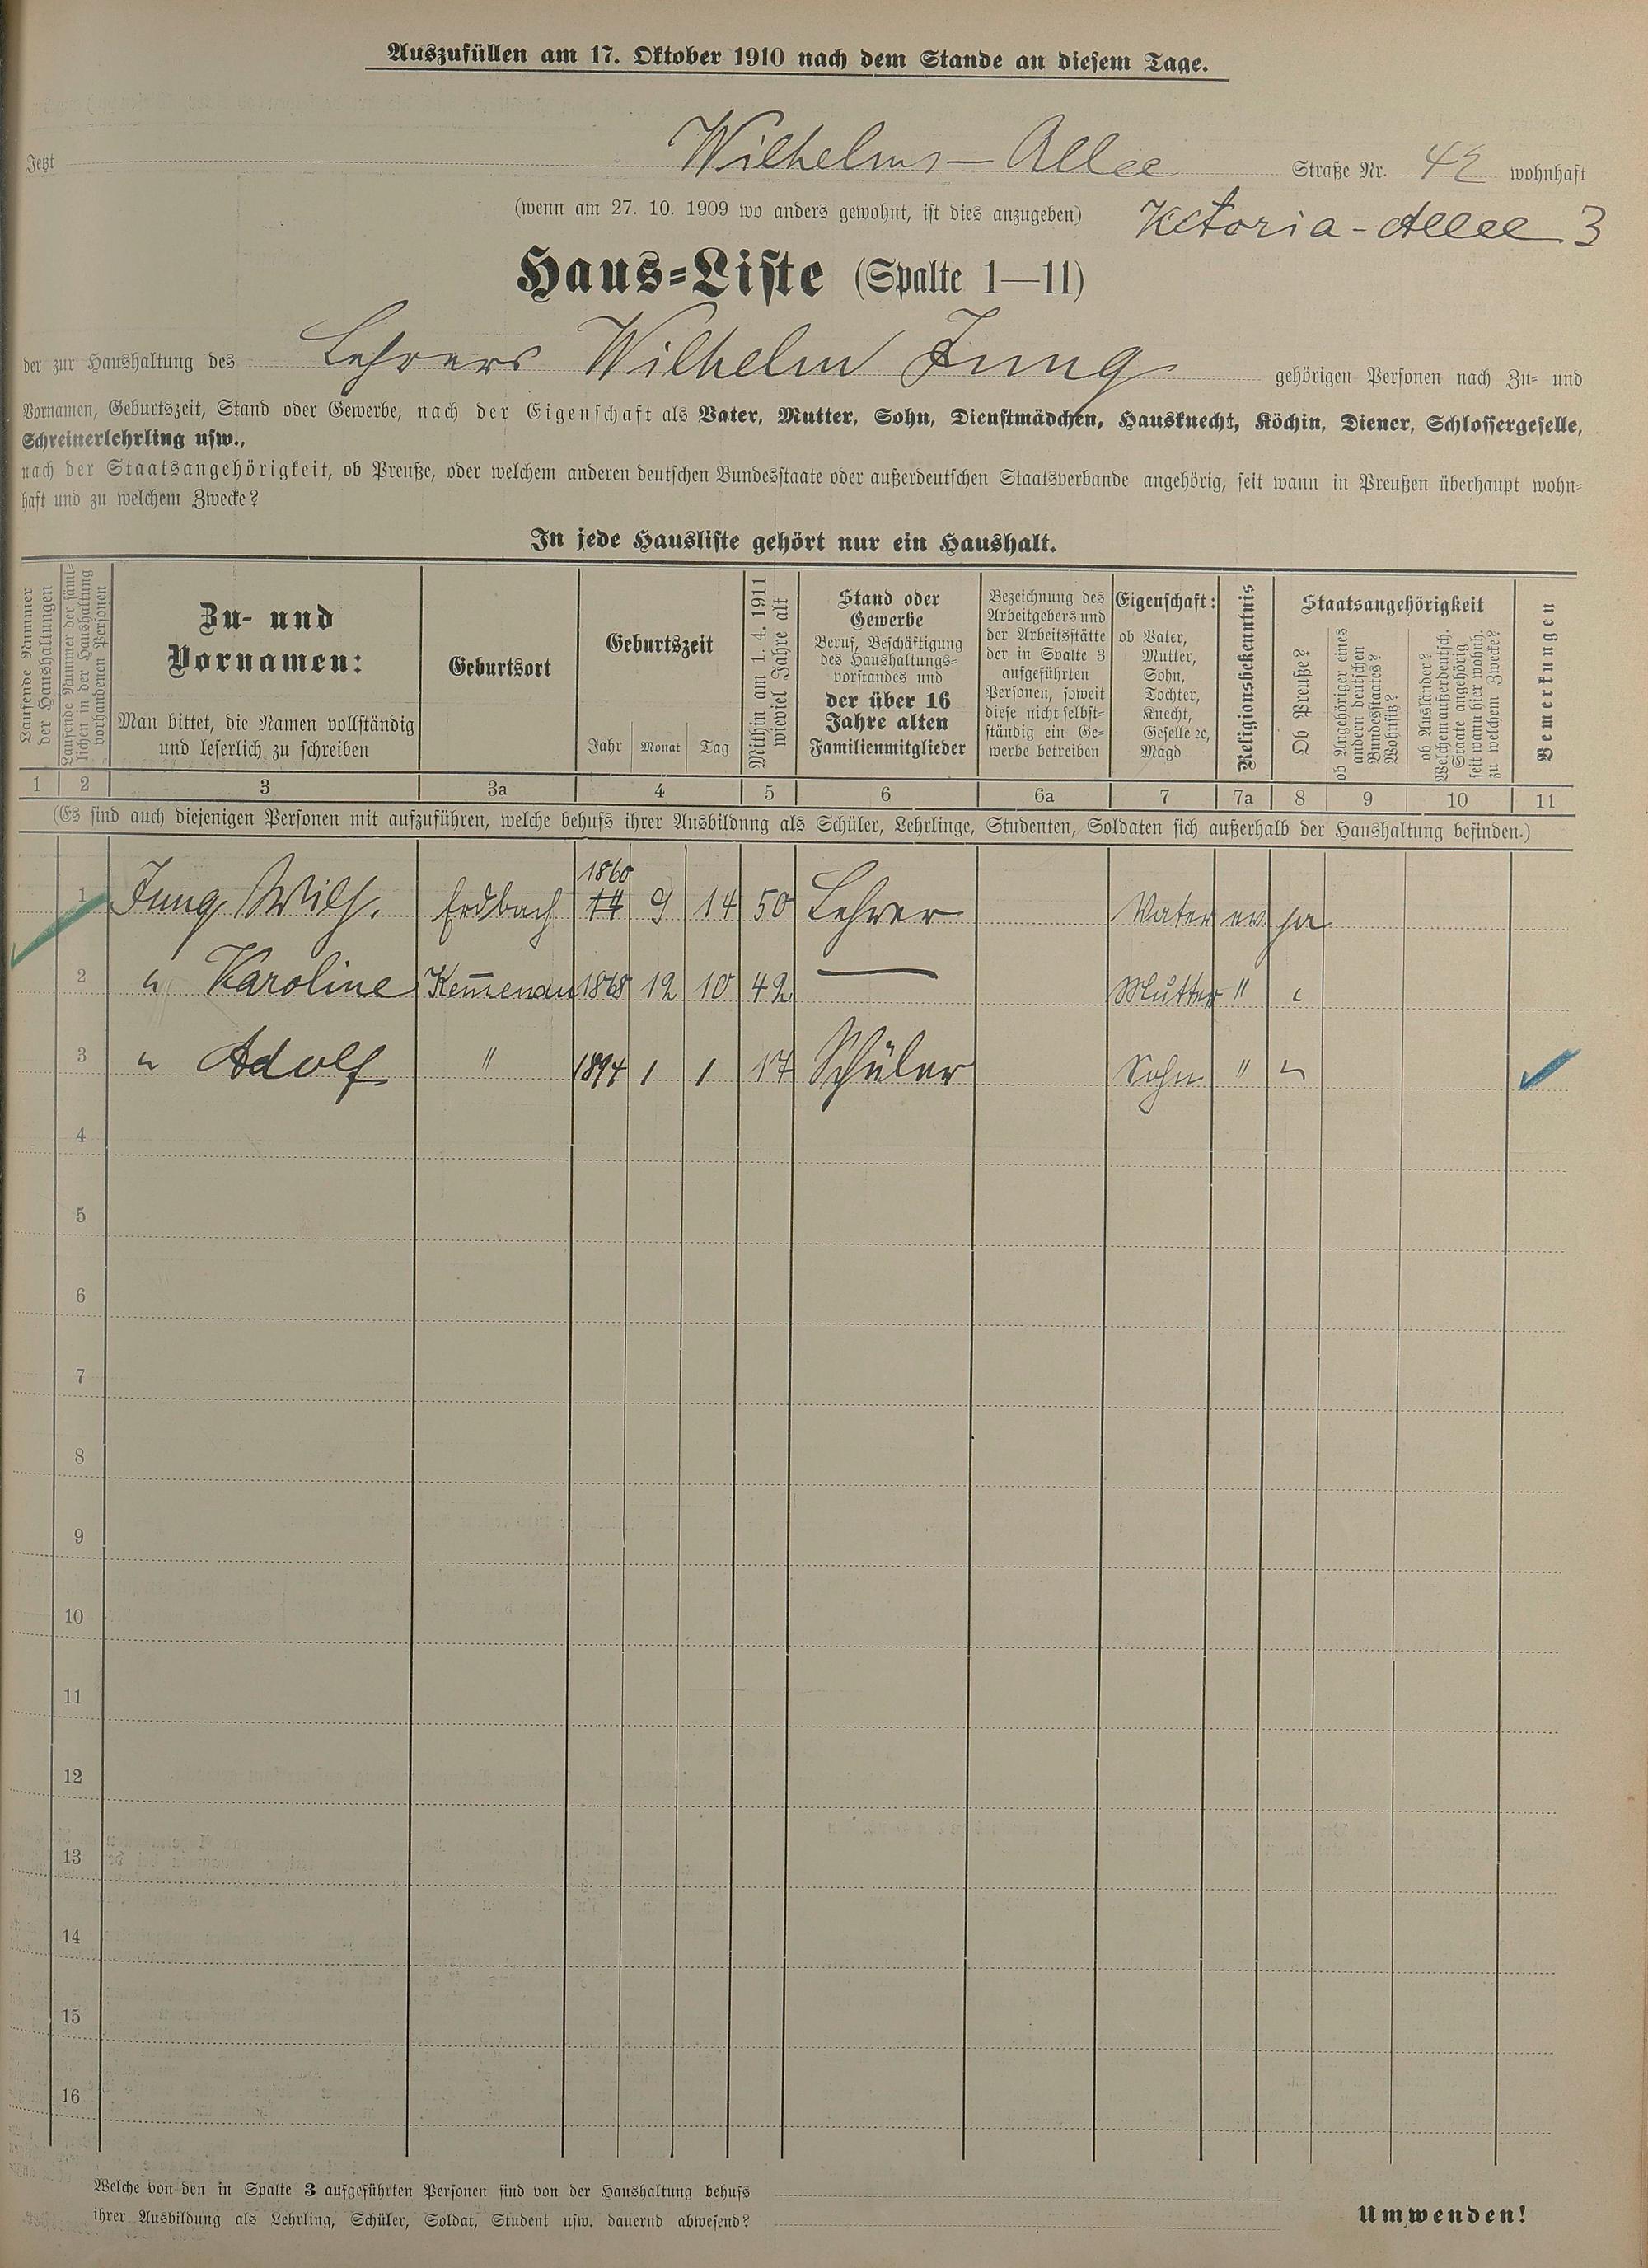 Auszufüllen am 17. Oktober 1910 nach dem Stande an diesem Tage.
Jetzt Wilhelms-Allee Straße Nr. 42 wohnhaft
(wenn am 27. 10. 1909 wo anders gewohnt, ist dies anzugeben) Viktoria-Allee 3
Haus-Liste (Spalte 1—11)
der zur Haushaltung des Lehrers Wilhelm Jung gehörigen Personen nach Zu- und
Vornamen, Geburtszeit, Stand oder Gewerbe, nach der Eigenschaft als Vater, Mutter, Sohn, Dienstmädchen, Hausknecht, Köchin, Diener, Schlossergeselle,
Schreinerlehrling usw.,
nach der Staatsangehörigkeit, ob Preuße, oder welchem anderen deutschen Bundesstaate oder außerdeutschen Staatsverbande angehörig, seit wann in Preußen überhaupt wohn-
haft und zu welchem Zwecke?
In jede Hausliste gehört nur ein Haushalt.
Laufende Nummer
der Haushaltungen
Laufende Nummer der sämt-
lichen in der Haushaltung
vorhandenen Personen
Zu- und
Vornamen:
Man bittet, die Namen vollständig
und leserlich zu schreiben
Geburtsort
Geburtszeit
Jahr Monat Tag
Mithin am 1. 4. 1911
wieviel Jahre alt
Stand oder
Gewerbe
Beruf, Beschäftigung
des Haushaltungs-
vorstandes und
der über 16
Jahre alten
Familienmitglieder
Bezeichnung des
Arbeitgebers und
der Arbeitsstätte
der in Spalte 3
aufgeführten
Personen, soweit
diese nicht selbst-
ständig ein Ge-
werbe betreiben
Eigenschaft:
ob Vater,
Mutter,
Sohn,
Tochter,
Knecht,
Geselle ꝛc,
Magd
Religionsbekenntnis
Staatsangehörigkeit
Ob Preuße?
ob Angehöriger eines
andern deutschen
Bundesstaates?
Wohnsitz?
ob Ausländer?
Welchem außerdeutsch.
Staate angehörig
seit wann hier wohnh.
zu welchem Zwecke?
Bemerkungen
1 2 3 3a 4 5 6 6a 7 7a 8 9 10 11
(Es sind auch diejenigen Personen mit aufzuführen, welche behufs ihrer Ausbildung als Schüler, Lehrlinge, Studenten, Soldaten sich außerhalb der Haushaltung befinden.)
1860
1 Jung, Wilh. Erdbach 9 14 50 Lehrer Vater ev. ja
2 " Karoline Kem̅enau 1868 12 10 42 — Mutter " "
3 " Adolf " 1894 1 1 17 Schüler Sohn " "
4
5
6
7
8
9
10
11
12
13
14
15
16
Welche von den in Spalte 3 aufgeführten Personen sind von der Haushaltung behufs
ihrer Ausbildung als Lehrling, Schüler, Soldat, Student usw. dauernd abwesend?
Umwenden!